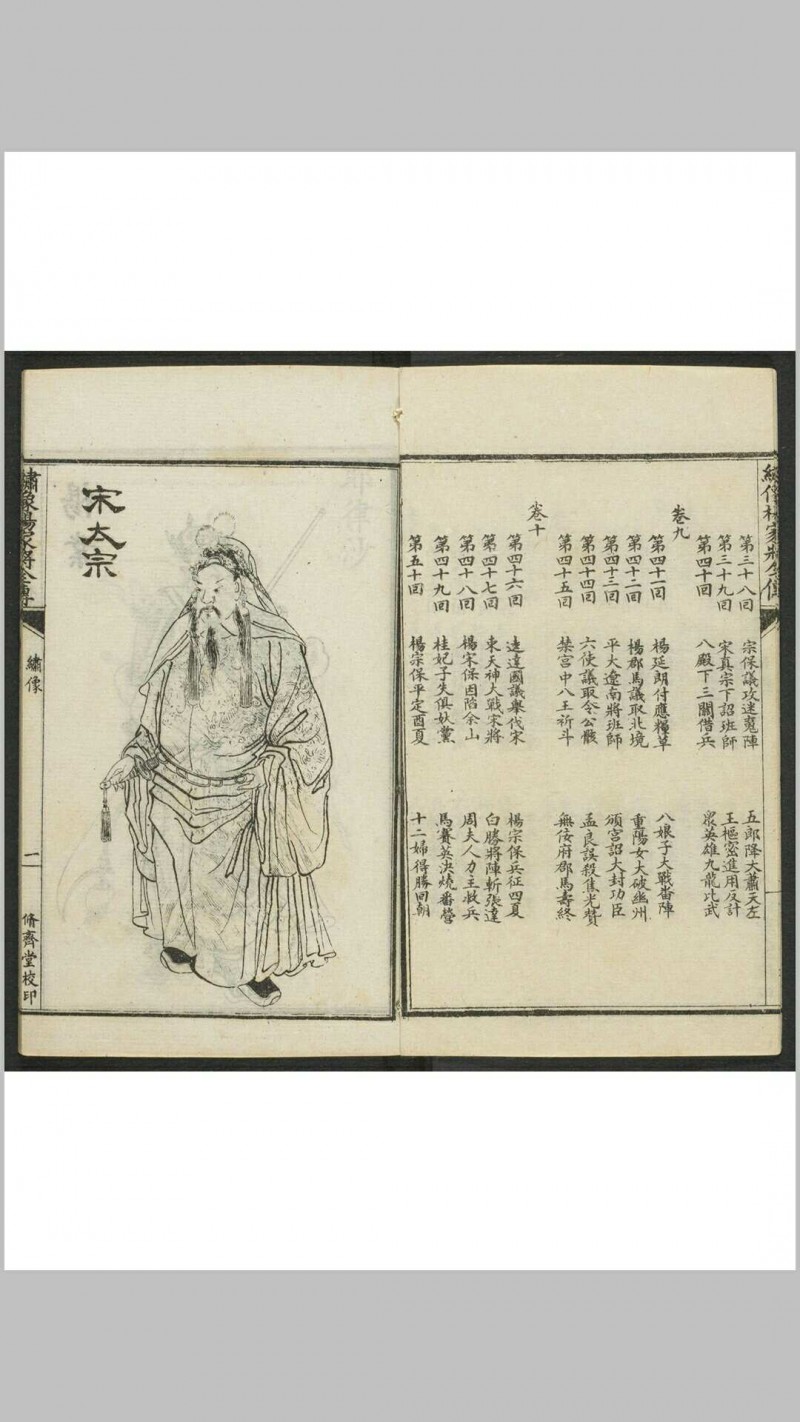 繡像楊家將全傳
第三十八回 宗保議攻迷魂陣 五郎降大蕭天左
第三十九回 宋真宗下詔班師 王樞密進用反計
第四十回 八殿下三關借兵 眾英雄九龍比武
卷九
第四十一回 楊延朗付應糧草 八娘子大戰番陣
第四十二回 楊郡馬議取北境 重陽女大破幽州
第四十三回 平大遼南將班師 頒宮詔大封功臣
第四十四回 六使議取令公骸 孟良誤殺焦光贊
第四十五回 禁宮中八王祈斗 無佞府郡馬壽終
卷十
第四十六回 達達國議舉伐宋 楊宗保兵征四夏
第四十七回 東天神大戰宋將 白勝將陣斬張達
第四十八回 楊宋保困陷余山 周夫人力主救兵
第四十九回 桂妃子失俱妖黨 馬賽英決燒番營
第五十回 楊宗保平定酉夏 十二婦得勝回朝
宋太宗
繡像楊家將全傳
繡像
一
脩齊堂校印